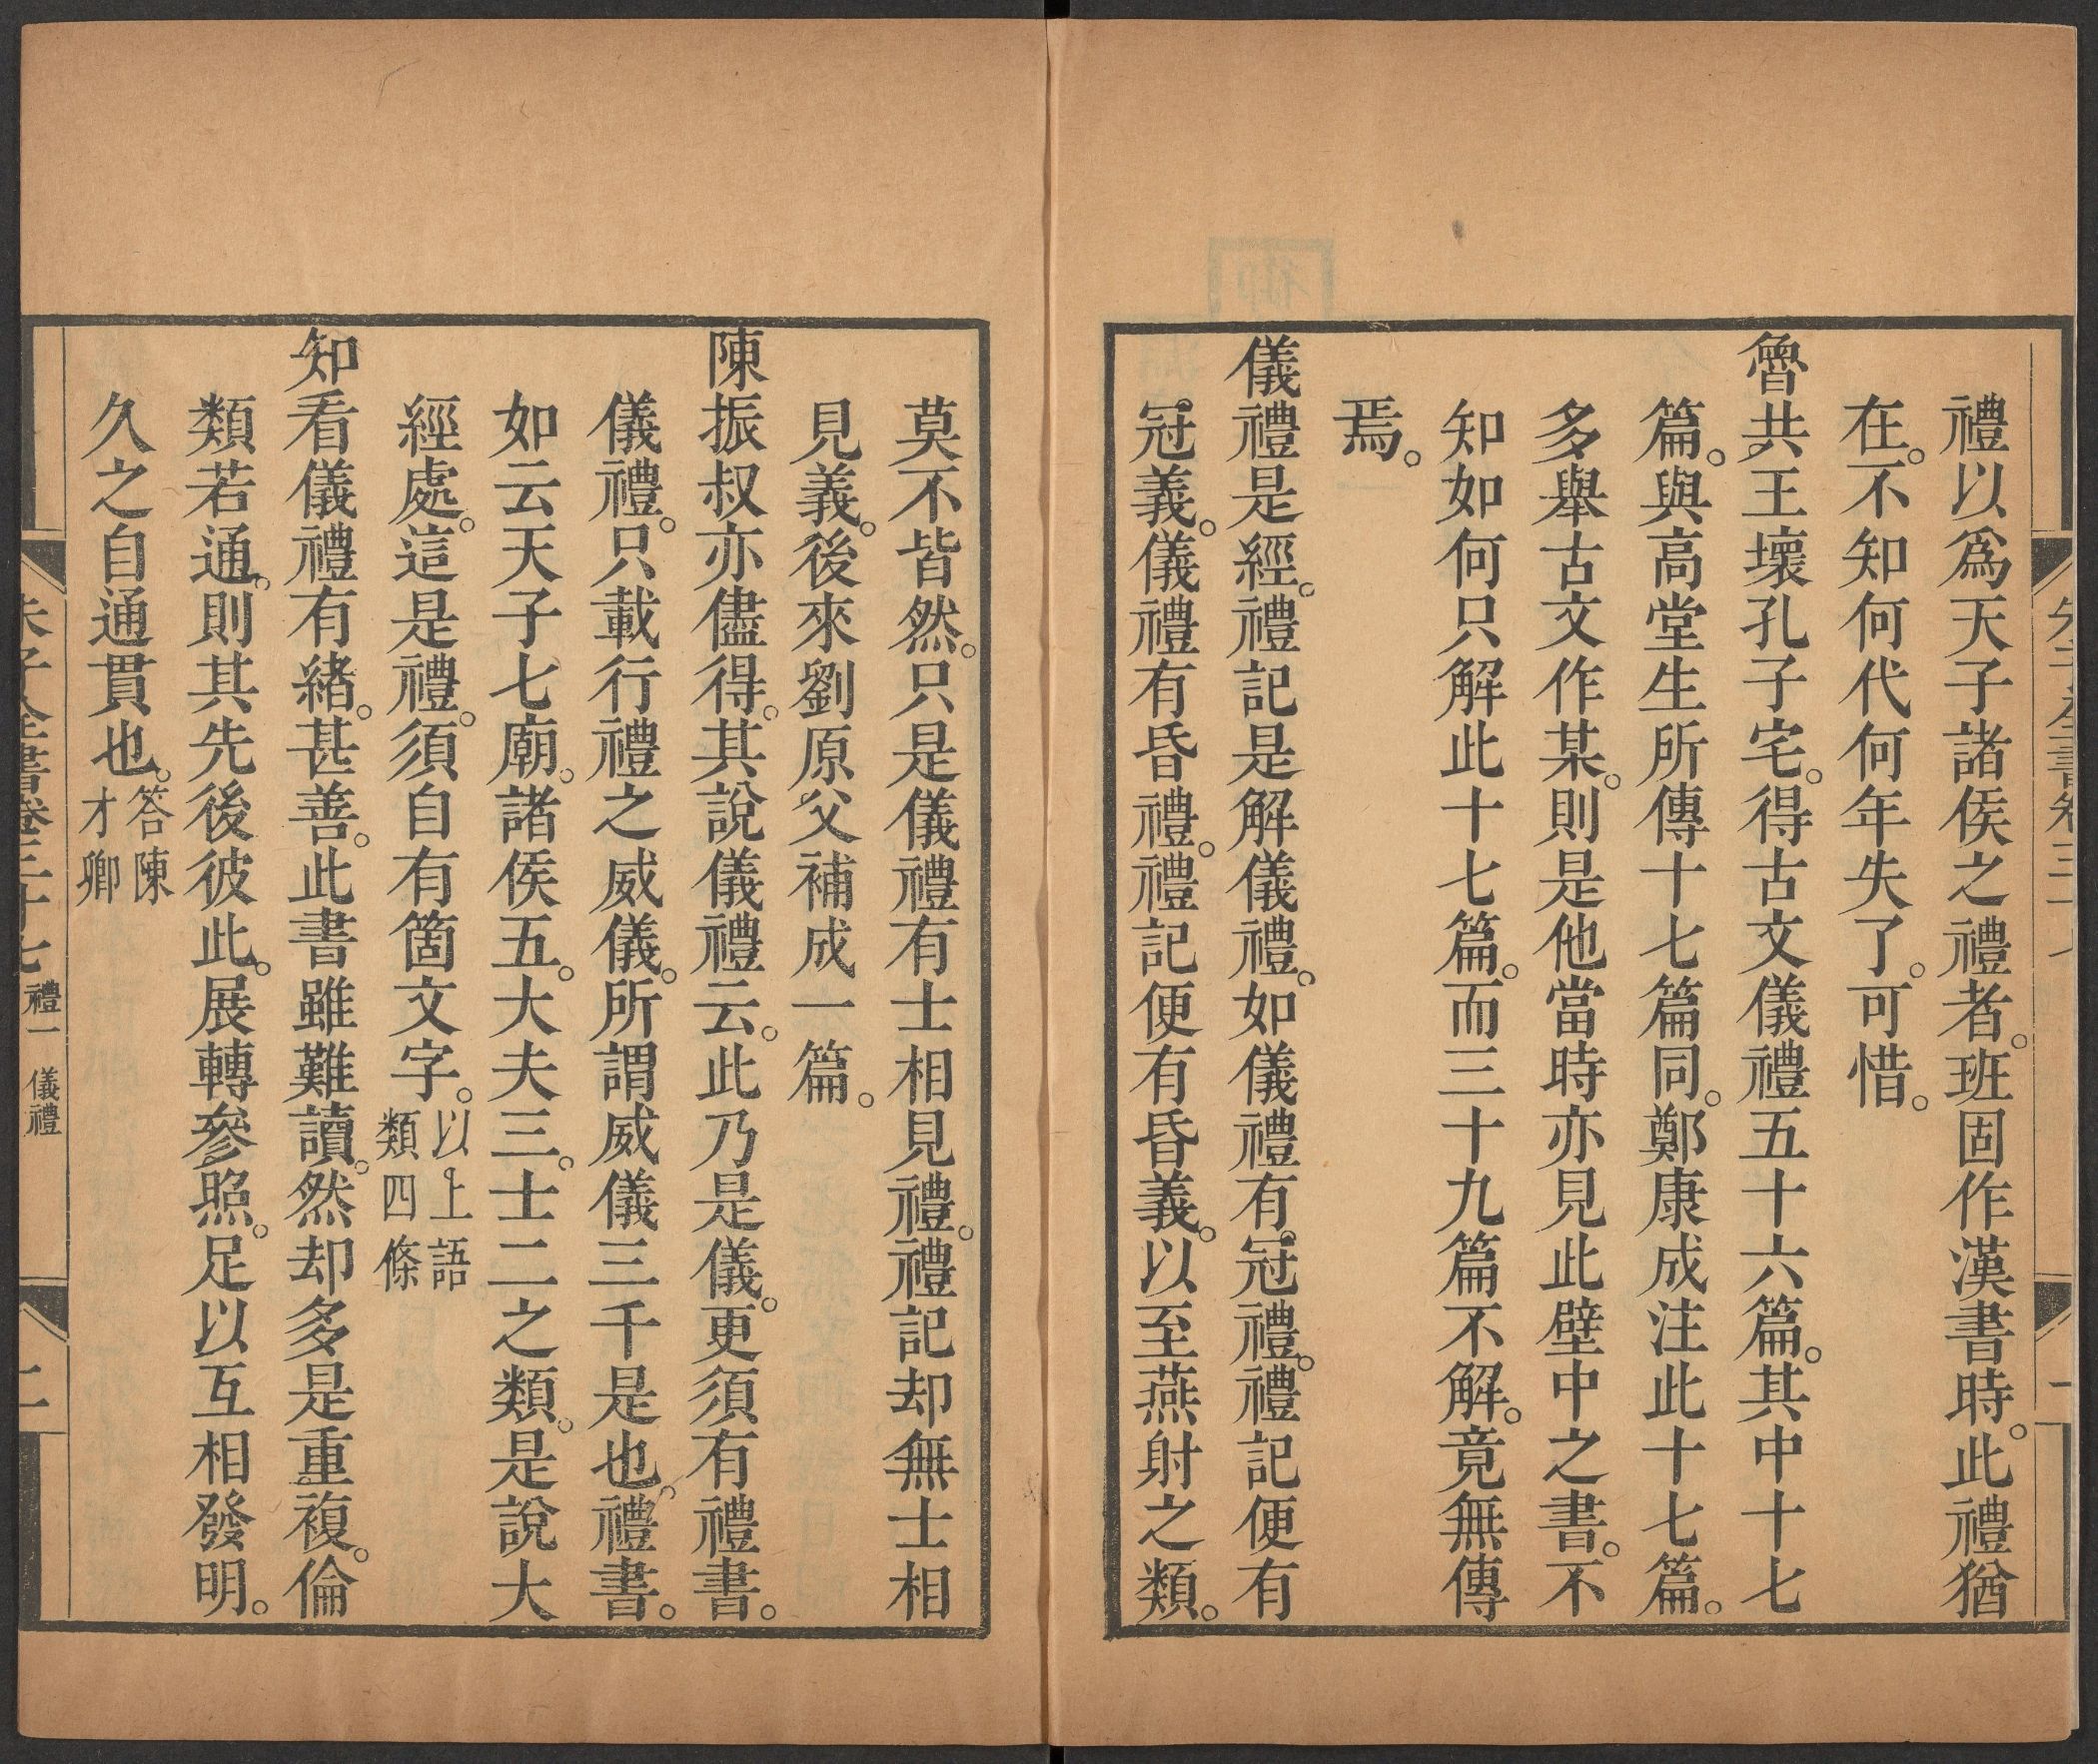 禮以爲天子諸侯之禮者。班固作漢書時。此禮猶
在。不知何代何年失了。可惜。
魯共王壞孔子宅。得古文儀禮五十六篇。其中十七
篇。與高堂生所傳十七篇同。鄭康成注此十七篇。
多舉古文作某。則是他當時亦見此壁中之書。不
知如何只解此十七篇。而三十九篇不解。竟無傳
焉。
儀禮是經。禮記是解儀禮。如儀禮有冠禮。禮記便有
冠義。儀禮有昏禮。禮記便有昏義。以至燕射之類。
莫不皆然。只是儀禮有士相見禮。禮記却無士相
見義。後來劉原父補成一篇。
陳振叔亦儘得。其說儀禮云。此乃是儀。更須有禮書。
儀禮。只載行禮之威儀。所謂威儀三千是也。禮書。
如云天子七廟。諸侯五。大夫三。士二之類。是說大
經處。這是禮。須自有箇文字。以上語類四條
知看儀禮有緒。甚善。此書雖難讀。然却多是重複。倫
類若通。則其先後彼此。展轉參照。足以互相發明。
久之自通貫也。答陳才卿
朱子全書卷三十七 禮一 儀禮 二